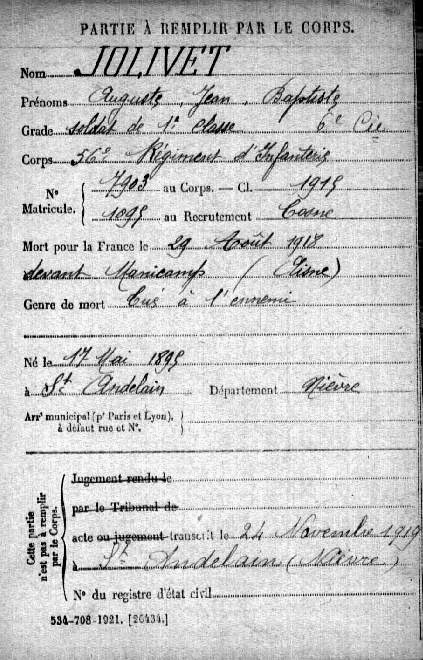 PARTIE À REMPLIR PAR LE CORPS.
Nom JOLIVET
Prénoms Auguste, Jean, Baptiste
Grade soldat de 1e classe 6e Cie
Corps 56e Régiment d'Infanterie
N° Matricule. 7903 au Corps. — Cl. 1915
1895 au Recrutement Cosne
Mort pour la France le 29 Août 1918
devant Manicamp (Aisne)
Genre de mort Tué à l'ennemi
Né le 17 Mai 1895
à St Andelain Département Nièvre
Arrt municipal (pr Paris et Lyon),
à défaut rue et N°.
Cette partie n'est pas à remplir par le Corps.
Jugement rendu le
par le Tribunal de
acte ou jugement transcrit le 24 Novembre 1919
à St Andelain (Nièvre)
N° du registre d'état civil
534-708-1921. [26434.]